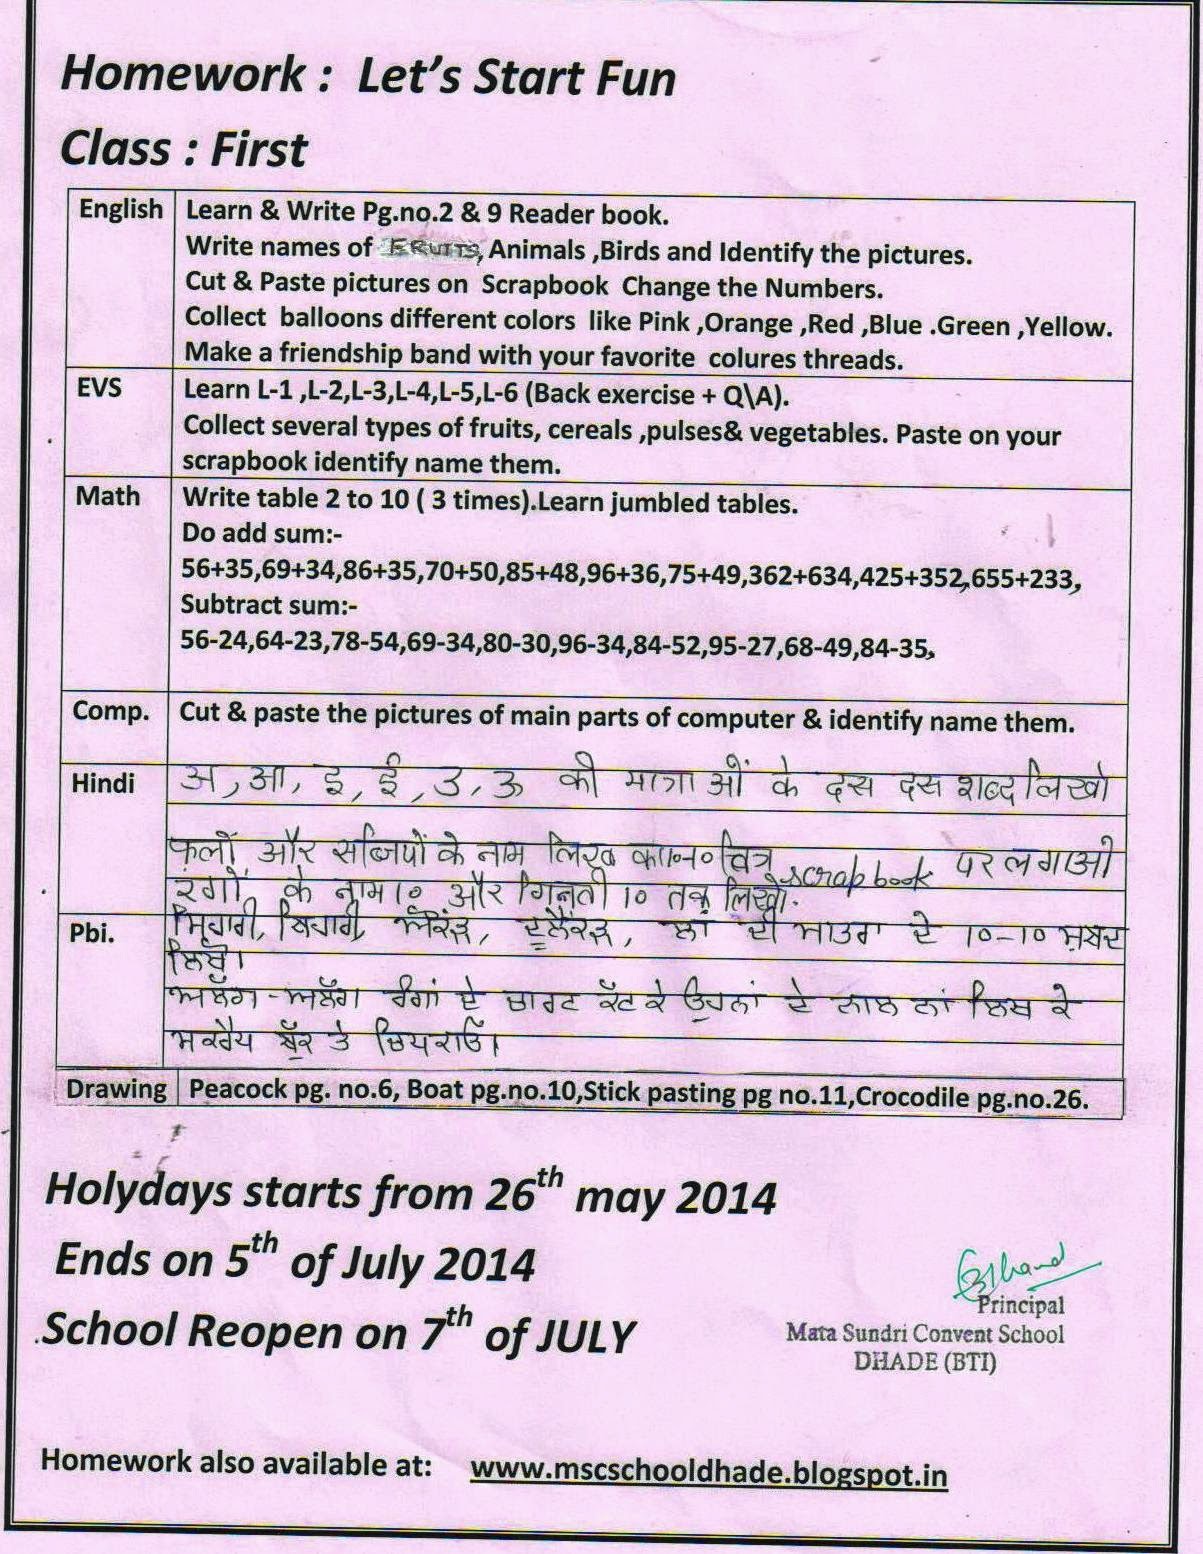 Homework : Let's Start Fun
Class : First
English Learn & Write Pg.no.2 & 9 Reader book.
Write names of FRUITS, Animals ,Birds and Identify the pictures.
Cut & Paste pictures on Scrapbook Change the Numbers.
Collect balloons different colors like Pink ,Orange ,Red ,Blue .Green ,Yellow.
Make a friendship band with your favorite colures threads.
EVS Learn L-1 ,L-2,L-3,L-4,L-5,L-6 (Back exercise + Q\A).
Collect several types of fruits, cereals ,pulses& vegetables. Paste on your
scrapbook identify name them.
Math Write table 2 to 10 ( 3 times).Learn jumbled tables.
Do add sum:-
56+35,69+34,86+35,70+50,85+48,96+36,75+49,362+634,425+352,655+233,
Subtract sum:-
56-24,64-23,78-54,69-34,80-30,96-34,84-52,95-27,68-49,84-35,
Comp. Cut & paste the pictures of main parts of computer & identify name them.
Hindi अ, आ, इ, ई, उ, ऊ की मात्राओं के दस दस शब्द लिखो
फलों और सब्जियों के नाम लिख का 10-10 चित्र scrapbook पर लगाओ
रंगों के नाम 10 और गिनती 10 तक लिखो.
Pbi. ਸਿਹਾਰੀ, ਬਿਹਾਰੀ, ਔਂਕੜ, ਦੂਲੈਂਕੜ, ਲਾਂ ਦੀ ਮਾਤਰਾ ਦੇ 10-10 ਸ਼ਬਦ
ਲਿਖੋ।
ਅਲੱਗ-ਅਲੱਗ ਰੰਗਾਂ ਦੇ ਚਾਰਟ ਕੱਟ ਕੇ ਉਹਨਾਂ ਦੇ ਨਾਲ ਨਾਂ ਲਿਖ ਕੇ
ਸਕਰੈਪ ਬੁੱਕ ਤੇ ਚਿਪਕਾਓ।
Drawing Peacock pg. no.6, Boat pg.no.10,Stick pasting pg no.11,Crocodile pg.no.26.
Holydays starts from 26th may 2014
Ends on 5th of July 2014
.School Reopen on 7th of JULY
Principal
Mata Sundri Convent School
DHADE (BTI)
Homework also available at: www.mscschooldhade.blogspot.in